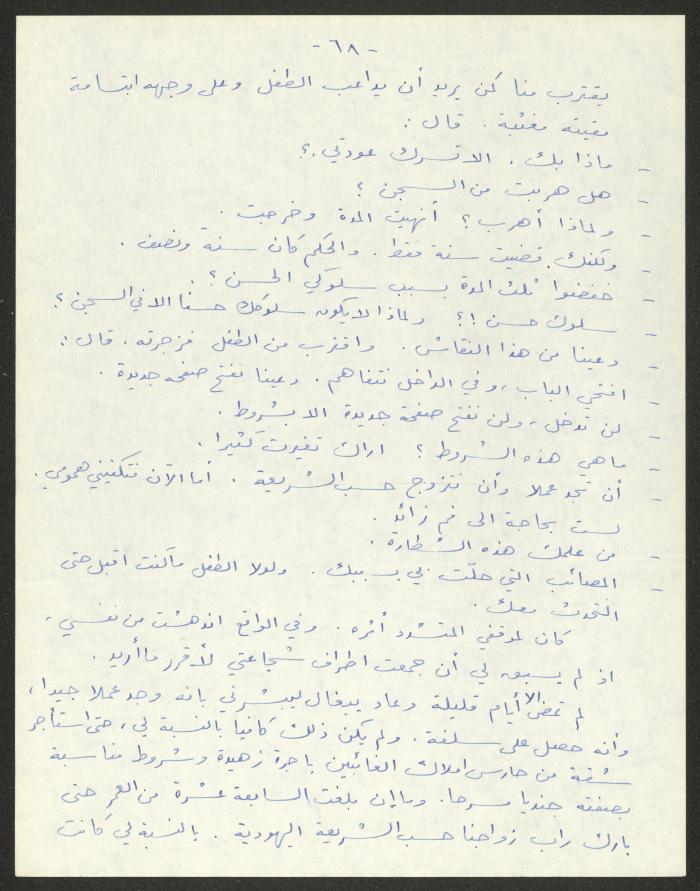 - ٦٨ -
يقترب منا كمن يريد أن يداعب الطفل وعلى وجهه ابتسامة
مقيتة مغثية . قال :
- ماذا بك . الا تسرك عودتي .؟
- هل هربت من السجن ؟
- ولماذا أهرب ؟ أنهيت المدة وخرجت .
- ولكنك قضيت سنة فقط . والحكم كان سنة ونصف .
- خفضوا ثلث المدة بسبب سلوكي الحسن ؟ .
- سلوك حسن !؟ ولماذا لا يكون سلوكك حسنا الا في السجن ؟
- دعينا من هذا النقاش . واقترب من الطفل فزجرته . قال :
- افتحي الباب ، وفي الداخل نتفاهم . دعينا نفتح صفحة جديدة .
- لن تدخل ، ولن نفتح صفحة جديدة الا بشروط .
- ما هي هذه الشروط ؟ اراك تغيرت كثيرا .
- أن تجد عملا وأن نتزوج حسب الشريعة . أما الآن فتكفيني همومي .
لست بحاجة الى فم زائد .
- من علمك هذه الشطارة .
- المصائب التي حلّت بي بسببك . ولولا الطفل ما كنت اقبل حتى
التحدث معك .
كان لموقفي المتشدد أثره . وفي الواقع اندهشت من نفسي ،
اذ لم يسبق لي أن جمعت اطراف شجاعتي لأقرر ما أريد .
لم تمض الا أيام قليلة وعاد ييغال ليبشرني بانه وجد عملا جيدا ،
وأنه حصل على سلفة . ولم يكن ذلك كافيا بالنسبة لي ، حتى استأجر
شقة من حارس املاك الغائبين باجرة زهيدة وشروط مناسبة
بصفته جنديا مسرحا . وما إن بلغت السابعة عشرة من العمر حتى
بارك راب زواجنا حسب الشريعة اليهودية . بالنسبة لي كانت